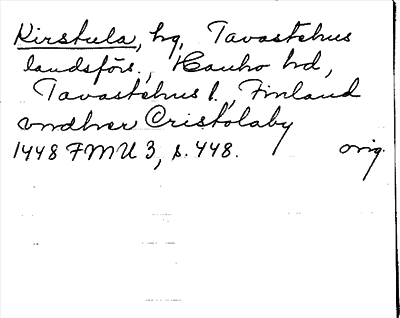 Kirstula, hg, Tavastehus
landsförs., Hauho hd,
Tavastehus l., Finland
vndher Cristolaby
1448 FMU 3, s. 448. orig.